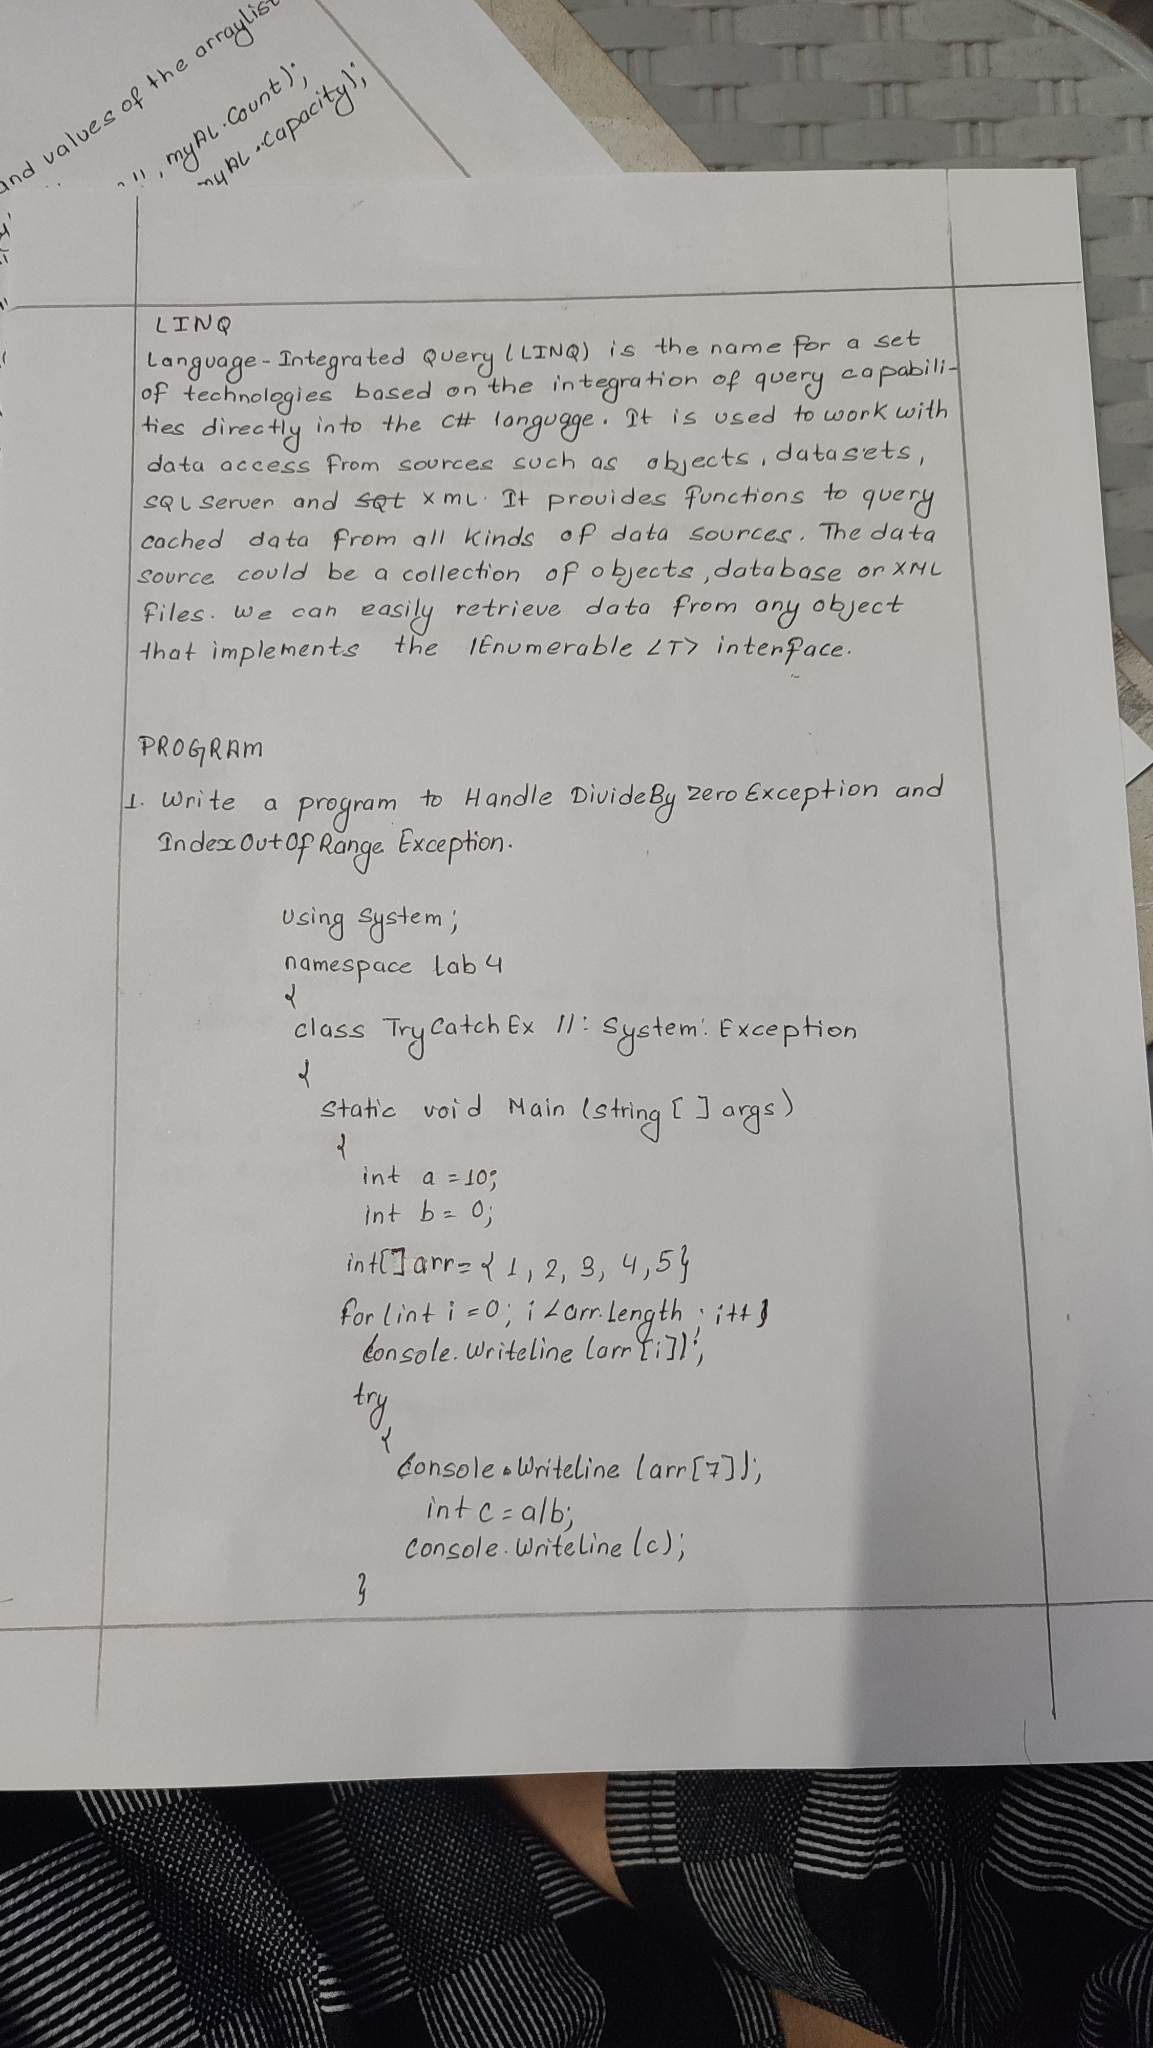 and values of the arraylist
, myAL.Count);
myAL.capacity);
LINQ
Language-Integrated Query (LINQ) is the name for a set
of technologies based on the integration of query capabili-
ties directly into the C# language. It is used to work with
data access from sources such as objects, datasets,
SQL Server and SQL XML. It provides functions to query
cached data from all kinds of data sources. The data
source could be a collection of objects, database or XML
files. We can easily retrieve data from any object
that implements the IEnumerable <T> interface.
PROGRAM
1. Write a program to Handle DivideBy Zero Exception and
IndexOutOf Range Exception.
Using System;
namespace Lab 4
{
class TryCatch Ex //: System. Exception
{
static void Main (string [ ] args)
{
int a = 10;
int b = 0;
int[] arr = { 1, 2, 3, 4, 5}
for (int i = 0; i < arr.Length ; i++)
Console.Writeline (arr [i]);
try
{
Console.Writeline (arr[7]);
int c = a/b;
Console.Writeline (c);
}